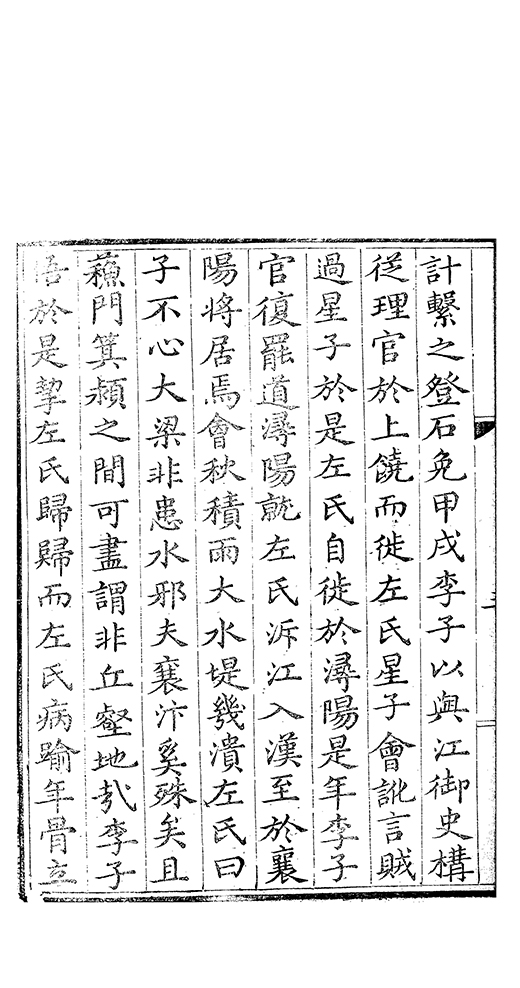 計繫之登石免甲戌李子以與江御史構
從理官於上饒而徙左氏星子會訛言賊
過星子於是左氏自徙於潯陽是年李子
官復罷道潯陽就左氏泝江入漢至於襄
陽將居焉會秋積雨大水堤幾潰左氏曰
子不心大梁非患水邪夫襄汴奚殊矣且
蘓門箕潁之間可盡謂非丘壑地哉李子
悟於是挈左氏歸歸而左氏病踰年骨立
三